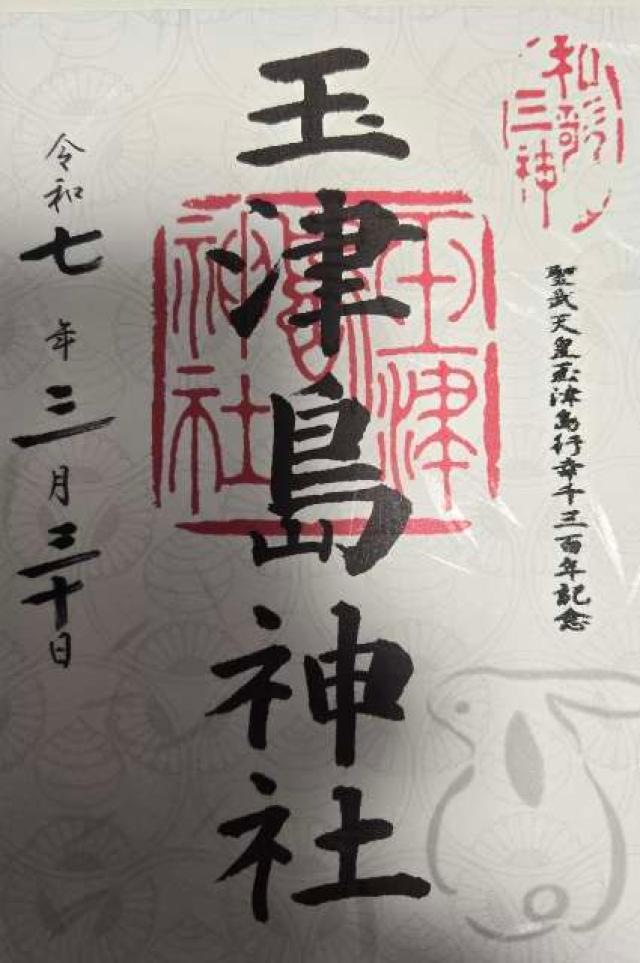 和歌
三神
聖武天皇玉津島行幸千三百年記念
玉津島神社
玉津
島
神社
令和七年三月三十日